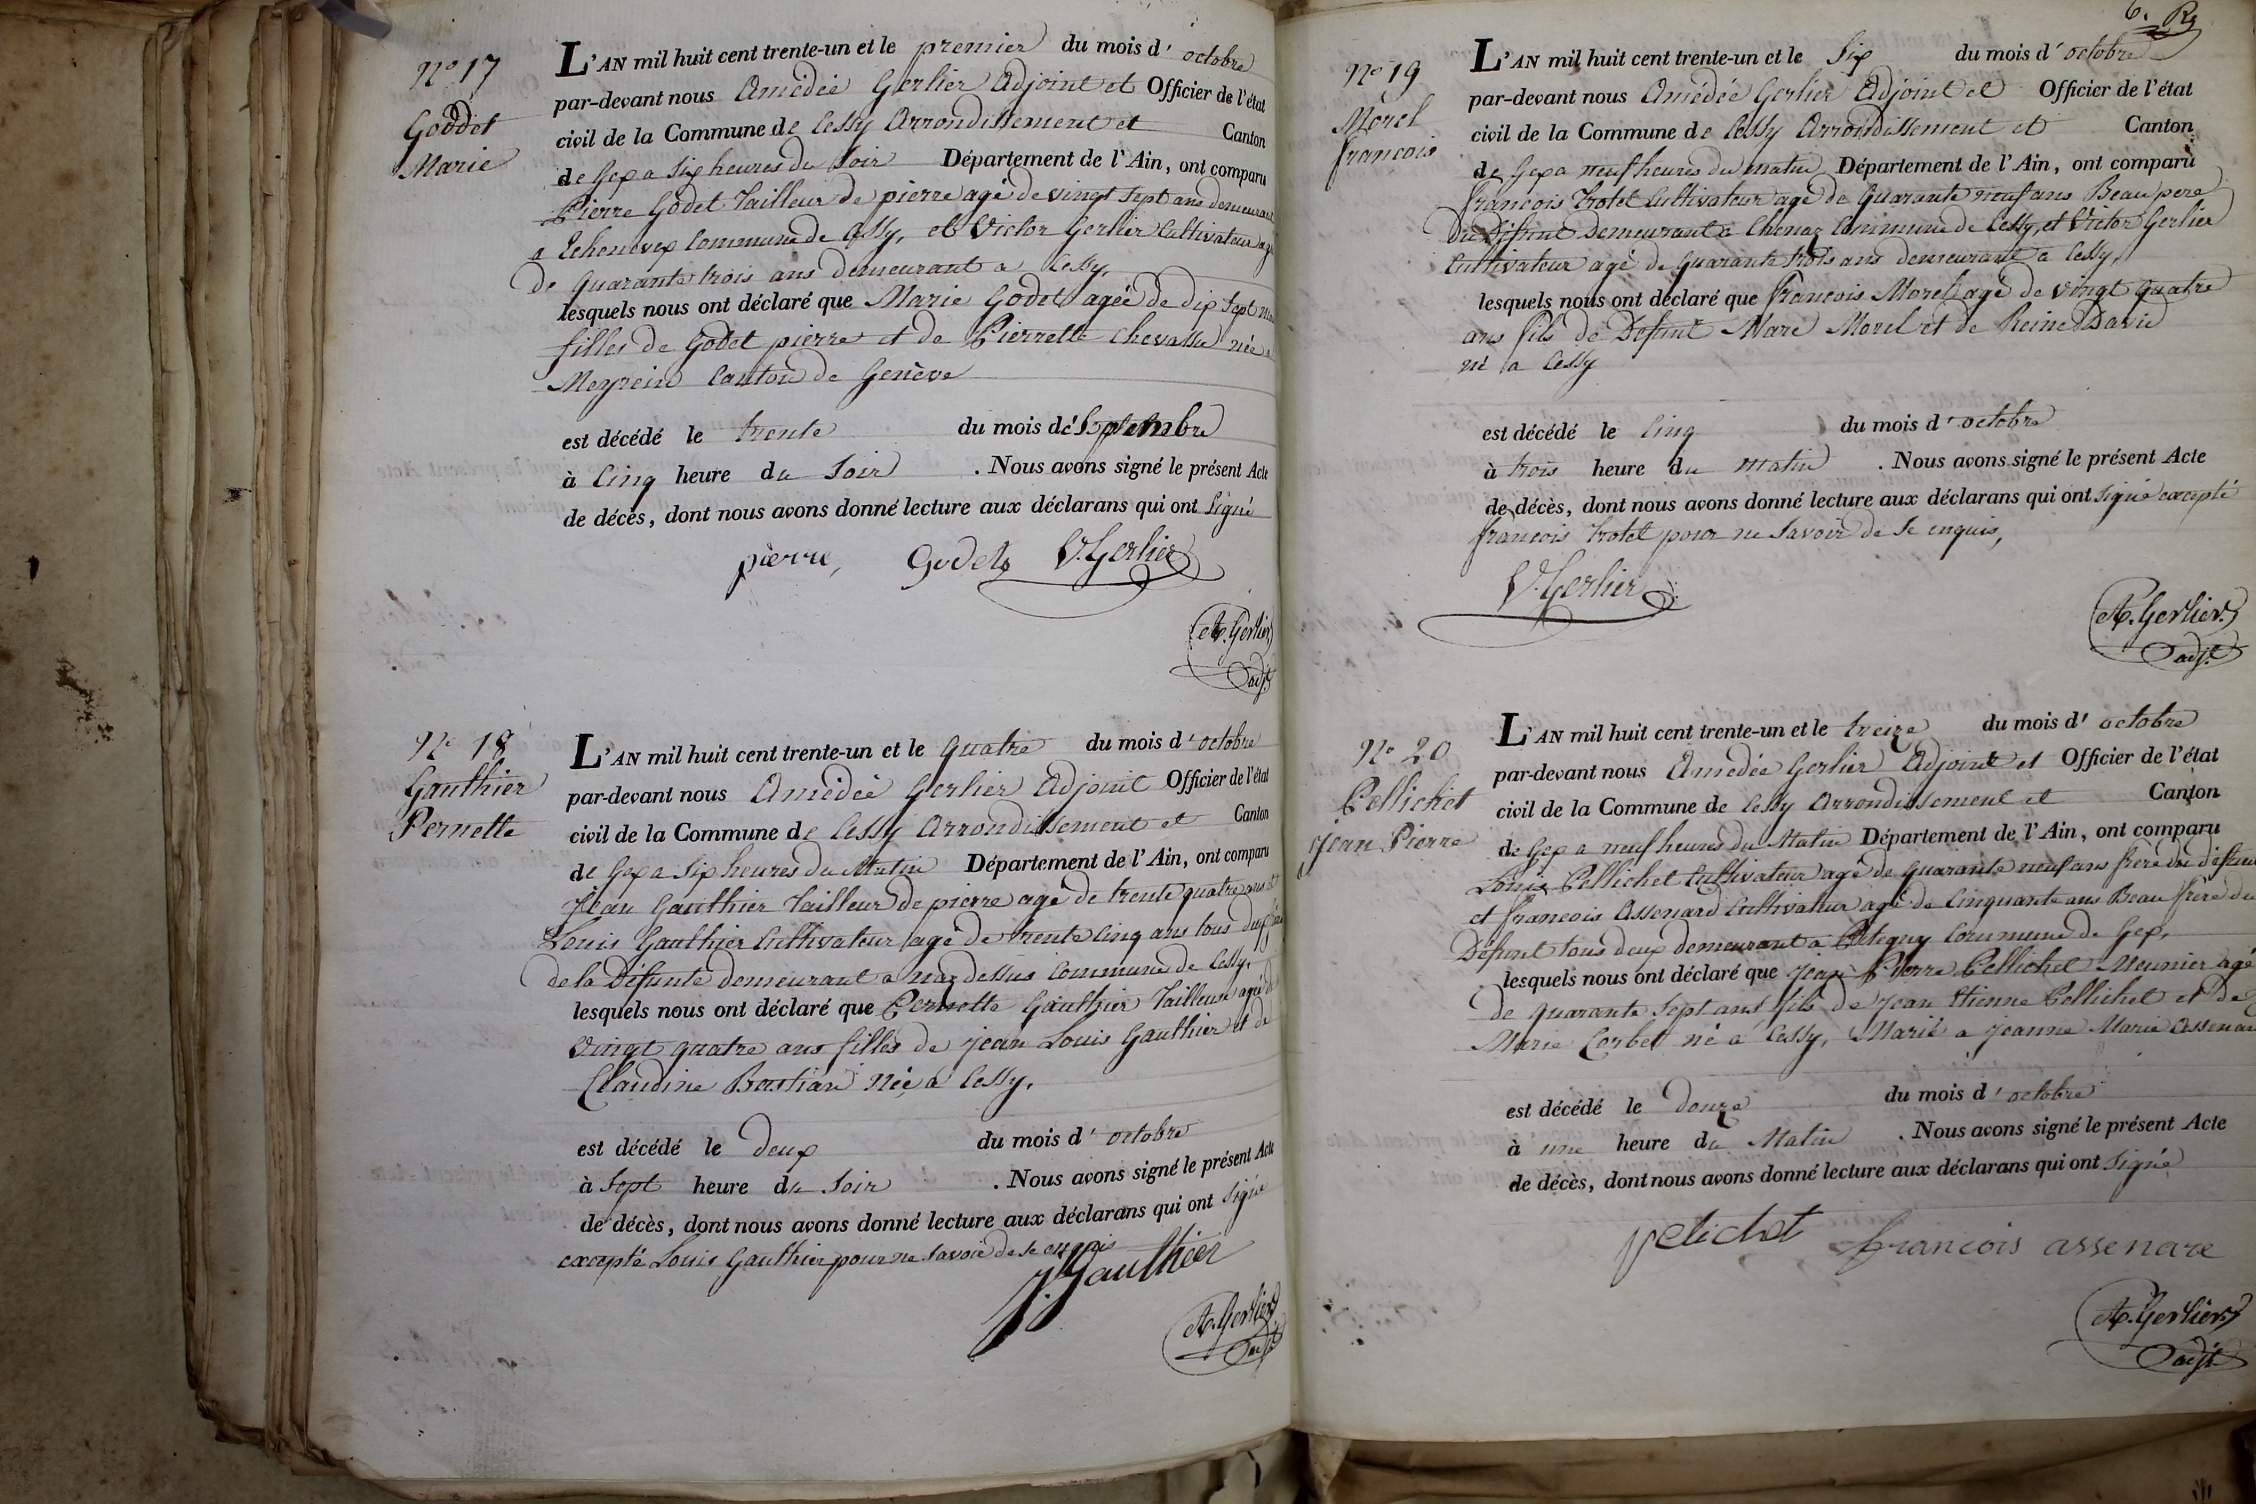 Nº 17
Goddet
Marie
L'AN mil huit cent trente-un et le premier du mois d' octobre
par-devant nous Amédée Gerlier Adjoint et Officier de l'état
civil de la Commune de Cessy Arrondissement et Canton
de Gex a Six heures du Soir Département de l'Ain, ont comparu
Pierre Godet Tailleur de pierre agé de vingt Sept ans demeurant
a Echenevex Commune de Cessy, et Victor Gerlier Cultivateur agé
de quarante trois ans demeurant a Cessy,
lesquels nous ont déclaré que Marie Godet agée de dix Sept
filles de Godet pierre et de Pierrette Chevassu née a
Meyrein Canton de Genève
est décédé le trente du mois de Septembre
à Cinq heure du Soir . Nous avons signé le présent Acte
de décès, dont nous avons donné lecture aux déclarans qui ont Signé
pierre, Godet V. Gerlier
A. Gerlier
adjt
Nº 18
Gauthier
Pernette
L'AN mil huit cent trente-un et le quatre du mois d' octobre
par-devant nous Amédée Gerlier Adjoint Officier de l'état
civil de la Commune de Cessy Arrondissement et Canton
de Gex a Six heures du Matin Département de l'Ain, ont comparu
Jean Gauthier Tailleur de pierre agé de trente quatre ans et
Louis Gauthier Cultivateur agé de trente Cinq ans tous deux
de la Défunte demeurant a naz dessus Commune de Cessy.
lesquels nous ont déclaré que Pernette Gauthier Tailleuse agée de
vingt quatre ans filles de Jean Louis Gauthier et de
Claudine Bastian Née a Cessy.
est décédé le deux du mois d' octobre
à Sept heure du Soir . Nous avons signé le présent Acte
de décès, dont nous avons donné lecture aux déclarans qui ont Signé
excepté Louis Gauthier pour ne Savoir de Se enquis
J. Gauthier
A. Gerlier
adjt
6. Rg
Nº 19
Morel
francois
L'AN mil huit cent trente-un et le Six du mois d' octobre
par-devant nous Amédée Gerlier Adjoint et Officier de l'état
civil de la Commune de Cessy Arrondissement et Canton
de Gex a neuf heures du matin Département de l'Ain, ont comparu
francois Trotet Cultivateur agé de quarante neuf ans Beau pere
Du Défunt Demeurant a Chenaz Commune de Cessy, et Victor Gerlier
Cultivateur agé de quarante trois ans demeurant a Cessy,
lesquels nous ont déclaré que francois Morel agé de vingt quatre
ans fils de Défunt Marc Morel et de Reine David
né a Cessy
est décédé le Cinq du mois d' octobre
à trois heure du matin . Nous avons signé le présent Acte
de décès, dont nous avons donné lecture aux déclarans qui ont Signé excepté
francois Trotet pour ne Savoir de Se enquis,
V. Gerlier
A. Gerlier
adjt
Nº 20
Pellichet
Jean Pierre
L'AN mil huit cent trente-un et le treize du mois d' octobre
par-devant nous Amedée Gerlier Adjoint et Officier de l'état
civil de la Commune de Cessy Arrondissement et Canton
de Gex a neuf heures du Matin Département de l'Ain, ont comparu
Louis Pellichet Cultivateur agé de quarante neuf ans frère du défunt
et francois Assenard Cultivateur agé de Cinquante ans Beau frère du
Défunt tous deux demeurant a Pitegny Commune de Gex,
lesquels nous ont déclaré que Jean Pierre Pellichet Meunier agé
de quarante Sept ans fils de Jean Etienne Pellichet et de
Marie Corbet né a Cessy, Marié a Jeanne Marie
est décédé le douze du mois d' octobre
à une heure du Matin . Nous avons signé le présent Acte
de décès, dont nous avons donné lecture aux déclarans qui ont Signé
pelichet francois assenare
A. Gerlier
adjt